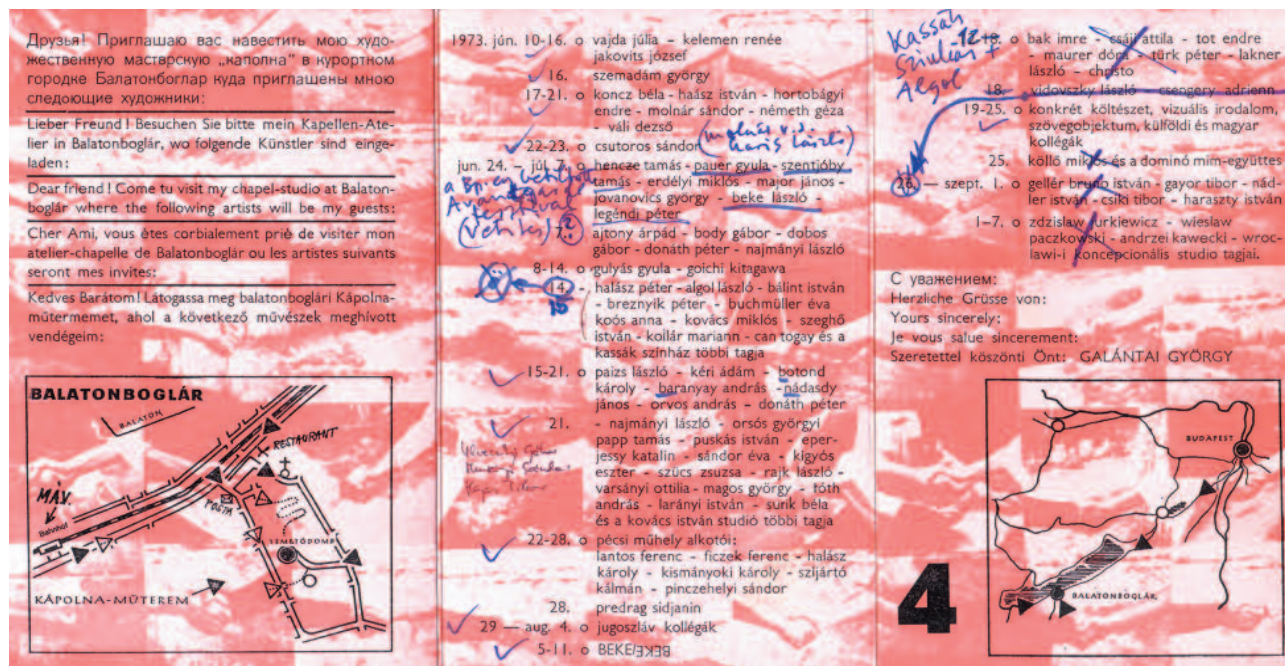 Друзья! Приглашаю вас навестить мою худо-
жественную мастврскую „каполна" в курортном
городке Балатонбоглар куда приглашены мною
следоющие художники:
Lieber Freund! Besuchen Sie bitte mein Kapellen-Ate-
lier in Balatonboglár, wo folgende Künstler sind einge-
laden:
Dear friend! Come tu visit my chapel-studio at Balaton-
boglár where the following artists will be my guests:
Cher Ami, vous ètes corbialement priè de visiter mon
atelier-chapelle de Balatonboglár ou les artistes suivants
seront mes invites:
Kedves Barátom! Látogassa meg balatonboglári Kápolna-
mütermemet, ahol a következő művészek meghívott
vendégeim:
BALATONBOGLÁR
BALATON
RESTAURANT
MÁV.
Bahnhof
POSTA
TEMETŐDOMB
KÁPOLNA-MŰTEREM
1973. jún. 10-16. o vajda júlia - kelemen renée
jakovits józsef
16. szemadám györgy
17-21. o koncz béla - haász istván - hortobágyi
endre - molnár sándor - németh géza
- váli dezső
22-23. o csutoros sándor
haris lászló)
jun. 24. — júl. 7. o hencze tamás - pauer gyula - szentjóby
tamás - erdélyi miklós - major jános -
jovanovics györgy - beke lászló -
legéndi péter
(Vetítés)
7. ajtony árpád - body gábor - dobos
gábor - donáth péter - najmányi lászló
8-14. o gulyás gyula - goichi kitagawa
14. - halász péter - algol lászló - bálint istván
- breznyik péter - buchmüller éva
koós anna - kovács miklós - szeghő
istván - kollár mariann - can togay és a
kassák színház többi tagja
15-21. o paizs lászló - kéri ádám - botond
károly - baranyay andrás - nádasdy
jános - orvos andrás - donáth péter
21. - najmányi lászló - orsós györgyi
papp tamás - puskás istván - eper-
jessy katalin - sándor éva - kígyós
eszter - szücs zsuzsa - rajk lászló -
varsányi ottilia - magos györgy - tóth
andrás - larányi istván - surik béla
és a kovács istván studió többi tagja
22-28. o pécsi műhely alkotói:
lantos ferenc - ficzek ferenc - halász
károly - kismányoki károly - szíjártó
kálmán - pinczehelyi sándor
28. predrag sidjanin
29 — aug. 4. o jugoszláv kollégák
5-11. o BEKE/BEKE
Kassák
Színház +
Algol
12-18. o bak imre - csáji attila - tot endre
- maurer dóra - türk péter - lakner
lászló - christo
18. vidovszky lászló - csengery adrienn
19-25. o konkrét költészet, vizuális irodalom,
szövegobjektum, külföldi és magyar
kollégák
25. köllő miklós és a dominó mim-együttes
26. — szept. 1. o gellér bruno istván - gayor tibor - nád-
ler istván - csiki tibor - haraszty istván
1-7. o zdzislaw jurkiewicz - wieslaw
paczkowski - andrzei kawecki - wroc-
lawi-i koncepcionális studio tagjai.
С уважением:
Herzliche Grüsse von:
Yours sincerely:
Je vous salue sincerement:
Szeretettel köszönti Önt: GALÁNTAI GYÖRGY
4
BUDAPEST
BALATONBOGLÁR